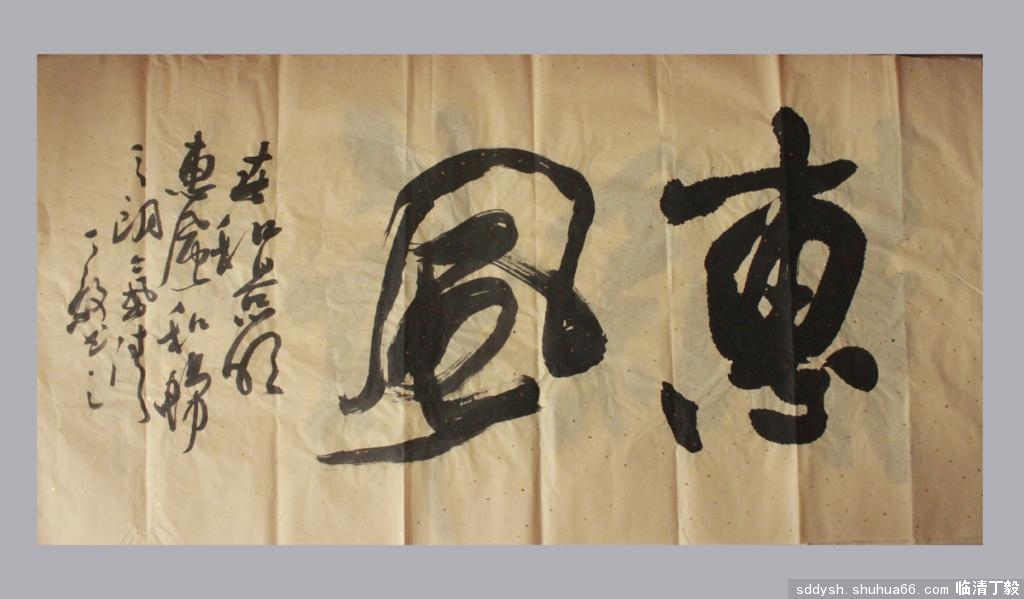 惠風
春和景明
惠風和暢
天朗氣清
丁毅书
sddysh.shuhua66.com 临清丁毅